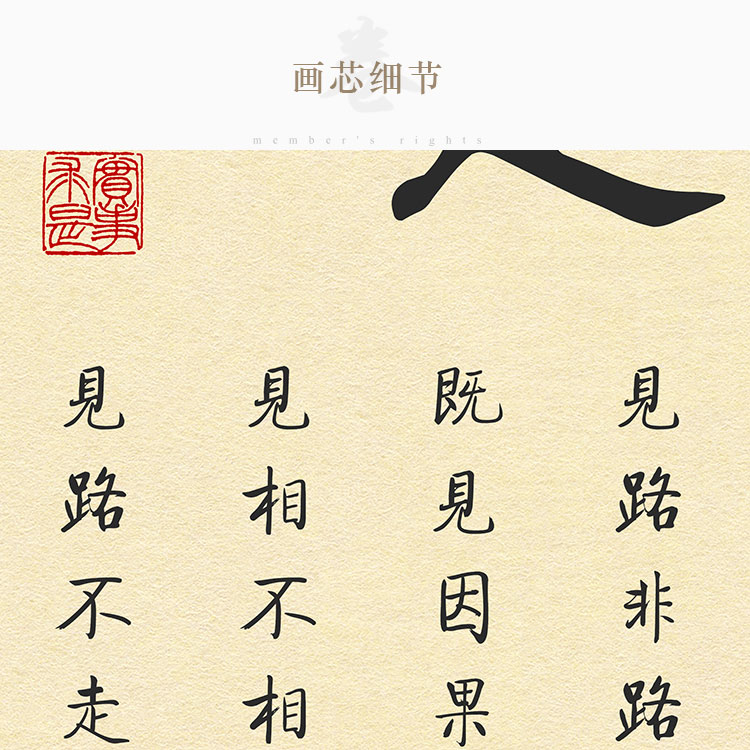 画芯细节
member's rights
實事
求是
見路非路
既見因果
見相不相
見路不走